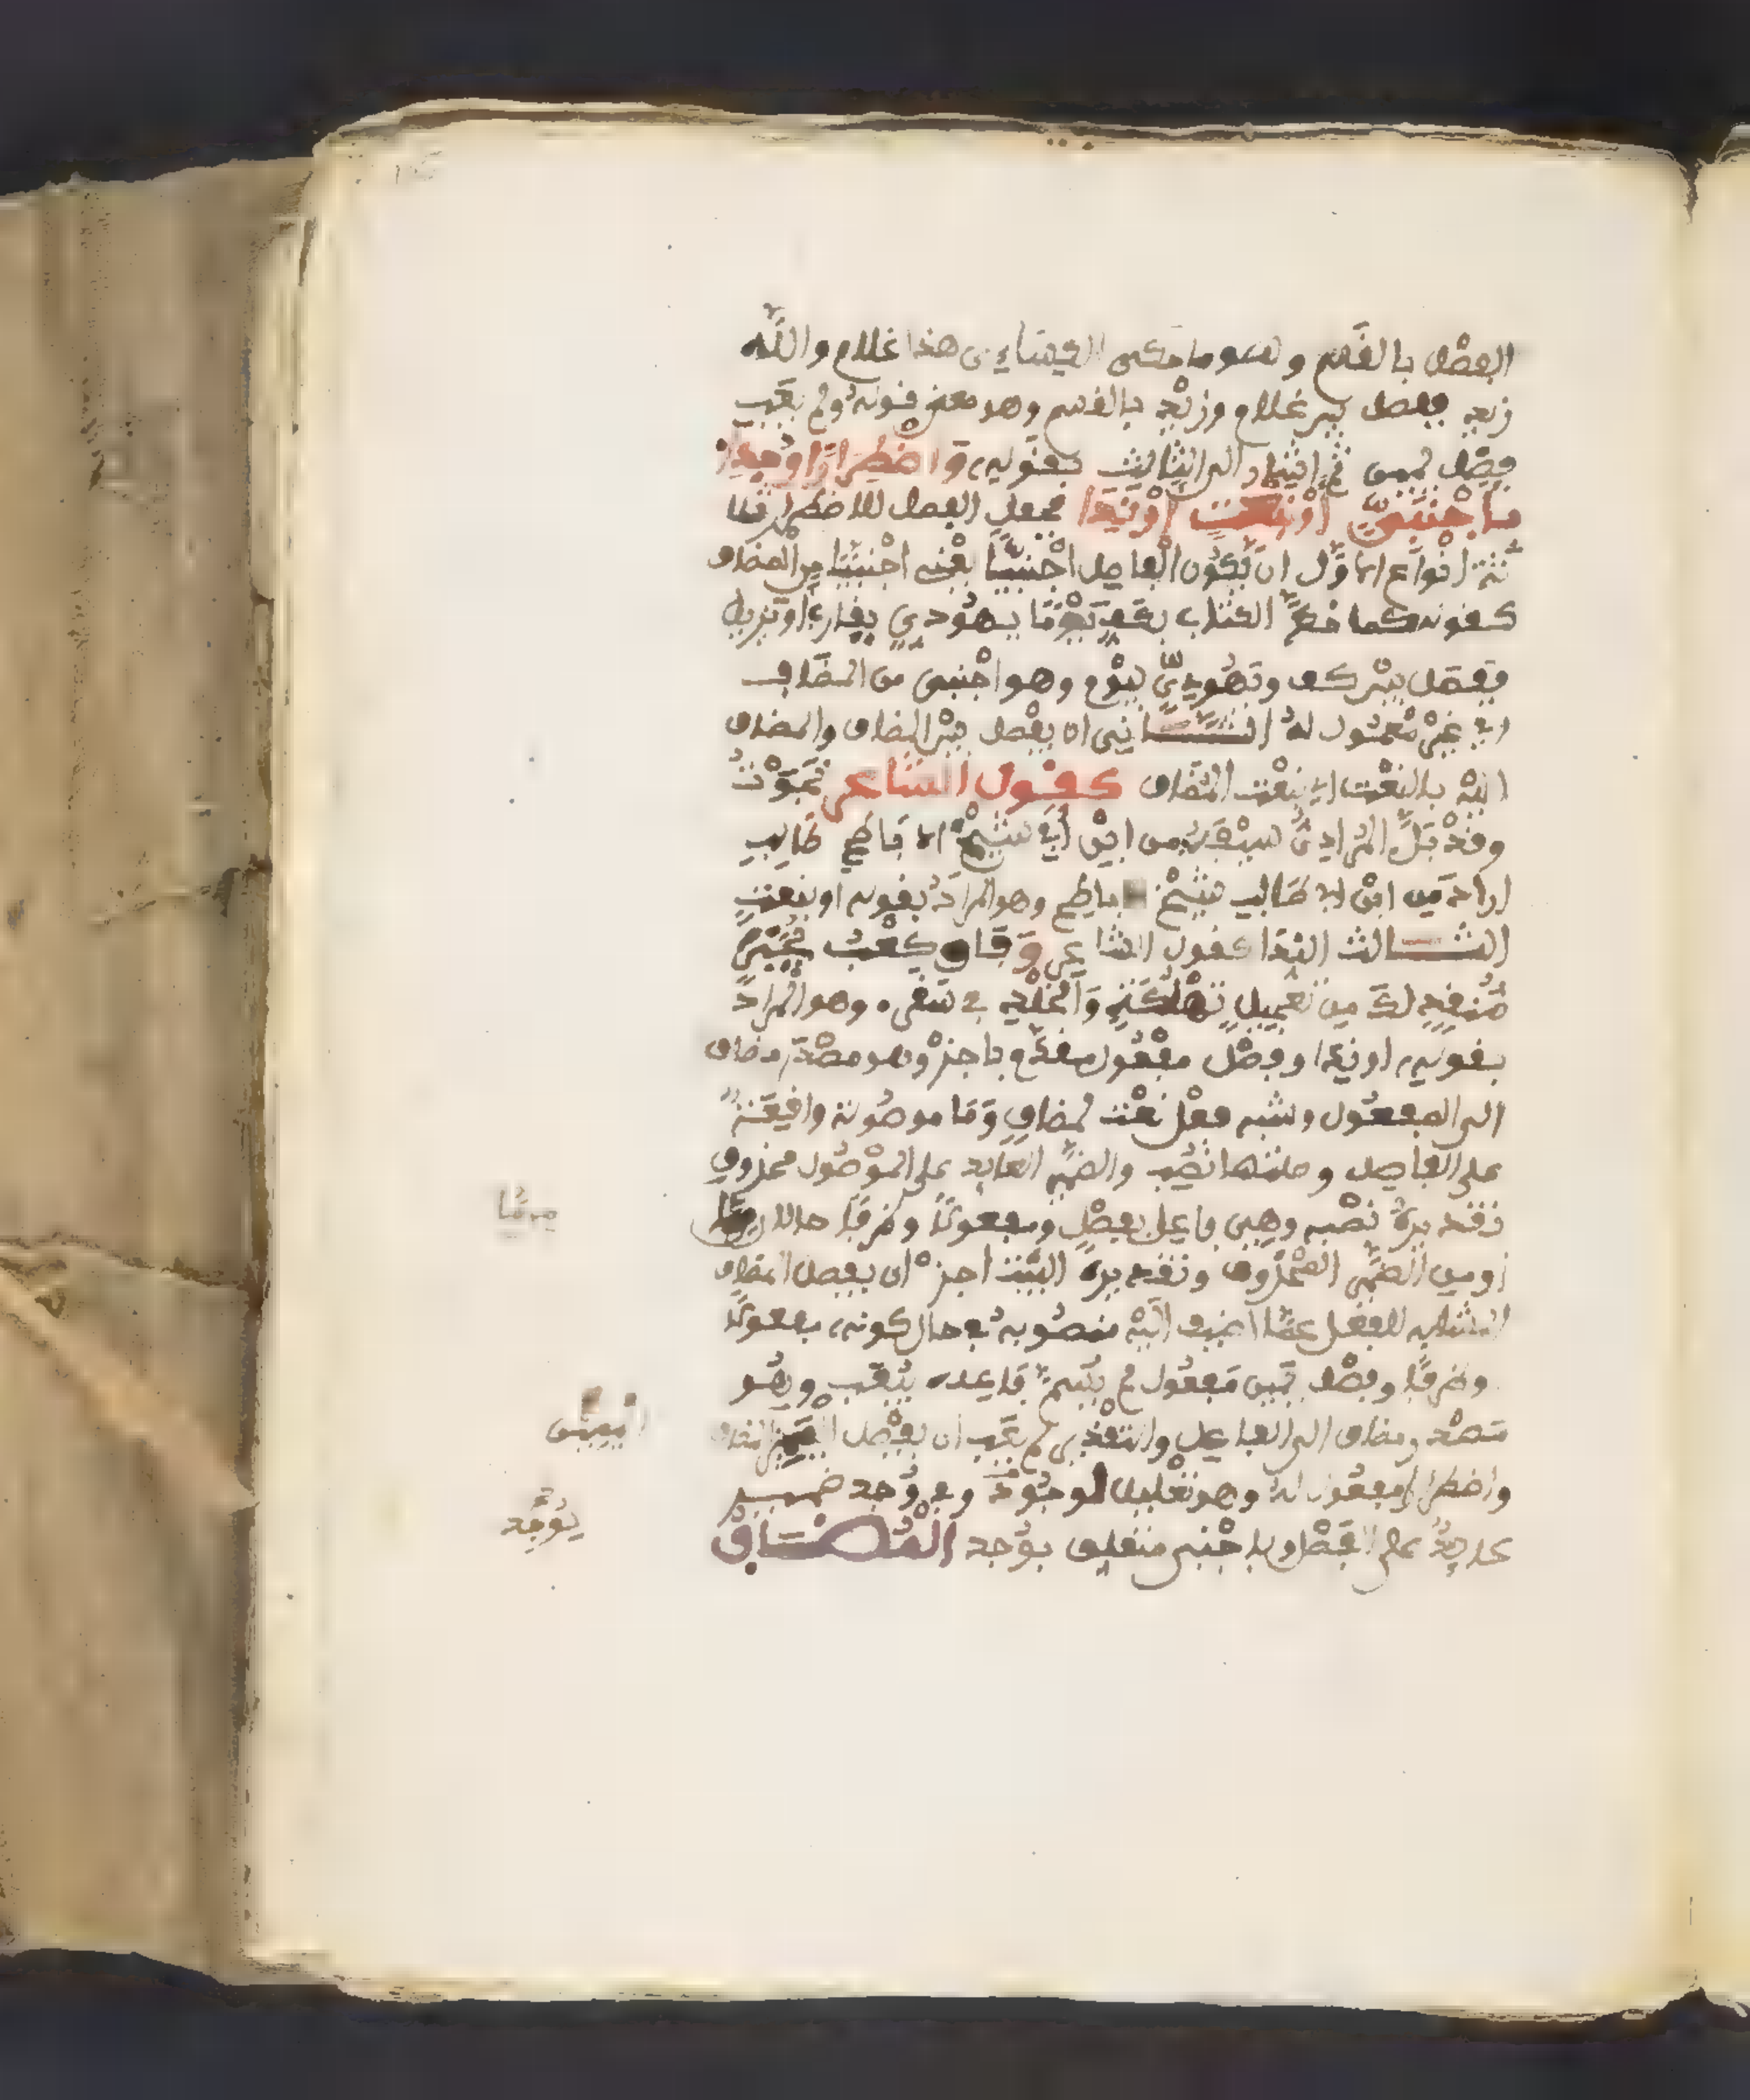 الفصل بالقسم وهو ما حكى الكسائي هذا غلام والله
زيد ففصل بين غلام وزيد بالقسم وهو معنى قوله ولم يعب
فصل يمين ثم اشار الى الثالث بقوله واضطرارا وجدا
باجنبي او بنعت او ندا فجعل الفصل للاضطرار
ثلاثة انواع الاول ان يكون الفاصل اجنبيا يعني اجنبيا من المضاف
كقوله كما خط الكتاب بكف يوما يهودي يقارب او يزيل
ففصل بين كف ويهودي بيوم وهو اجنبي من المضاف
اي غير معمول له الثاني ان يفصل بين المضاف والمضاف
اليه بالنعت اي بنعت المضاف كقول الشاعر نجوت
وقد بل المرادي سيفه من ابن ابي شيخ الاباطح طالب
اراد من ابن ابي طالب شيخ الاباطح وهو المراد بقوله او بنعت
الثالث الندا كقول الشاعر وفاق كعب بجير
منقذ لك من تعجيل تهلكة والخلد في سقر وهو المراد
بقوله او ندا وفصل مفعول مقدم باجز وهو مصدر مضاف
الى المفعول وشبه فعل نعت لمضاف وما موصولة واقعة
على الفاصل وصلتها نصب والضمير العايد على الموصول محذوف
تقديره نصبه وهي فاعل بفصل ومفعولا وظرفا حالان من ما
او من الضمير المحذوف وتقدير البيت اجز ان يفصل المضاف
المشابه للفعل عما اضيف اليه منصوبه في حال كونه مفعولا
وظرفا وفصل يمين مفعول لم يسم فاعله بيعب وهو
مصدر مضاف الى الفاعل والتقدير لم يعب ان يفصل اليمين المضاف
واضطرارا مفعول له وهو تعليل لوجود وفي وجد ضمير
عايد على الفصل وباجنبي متعلق بوجد المضاف
من ما
اليمين
يوجد